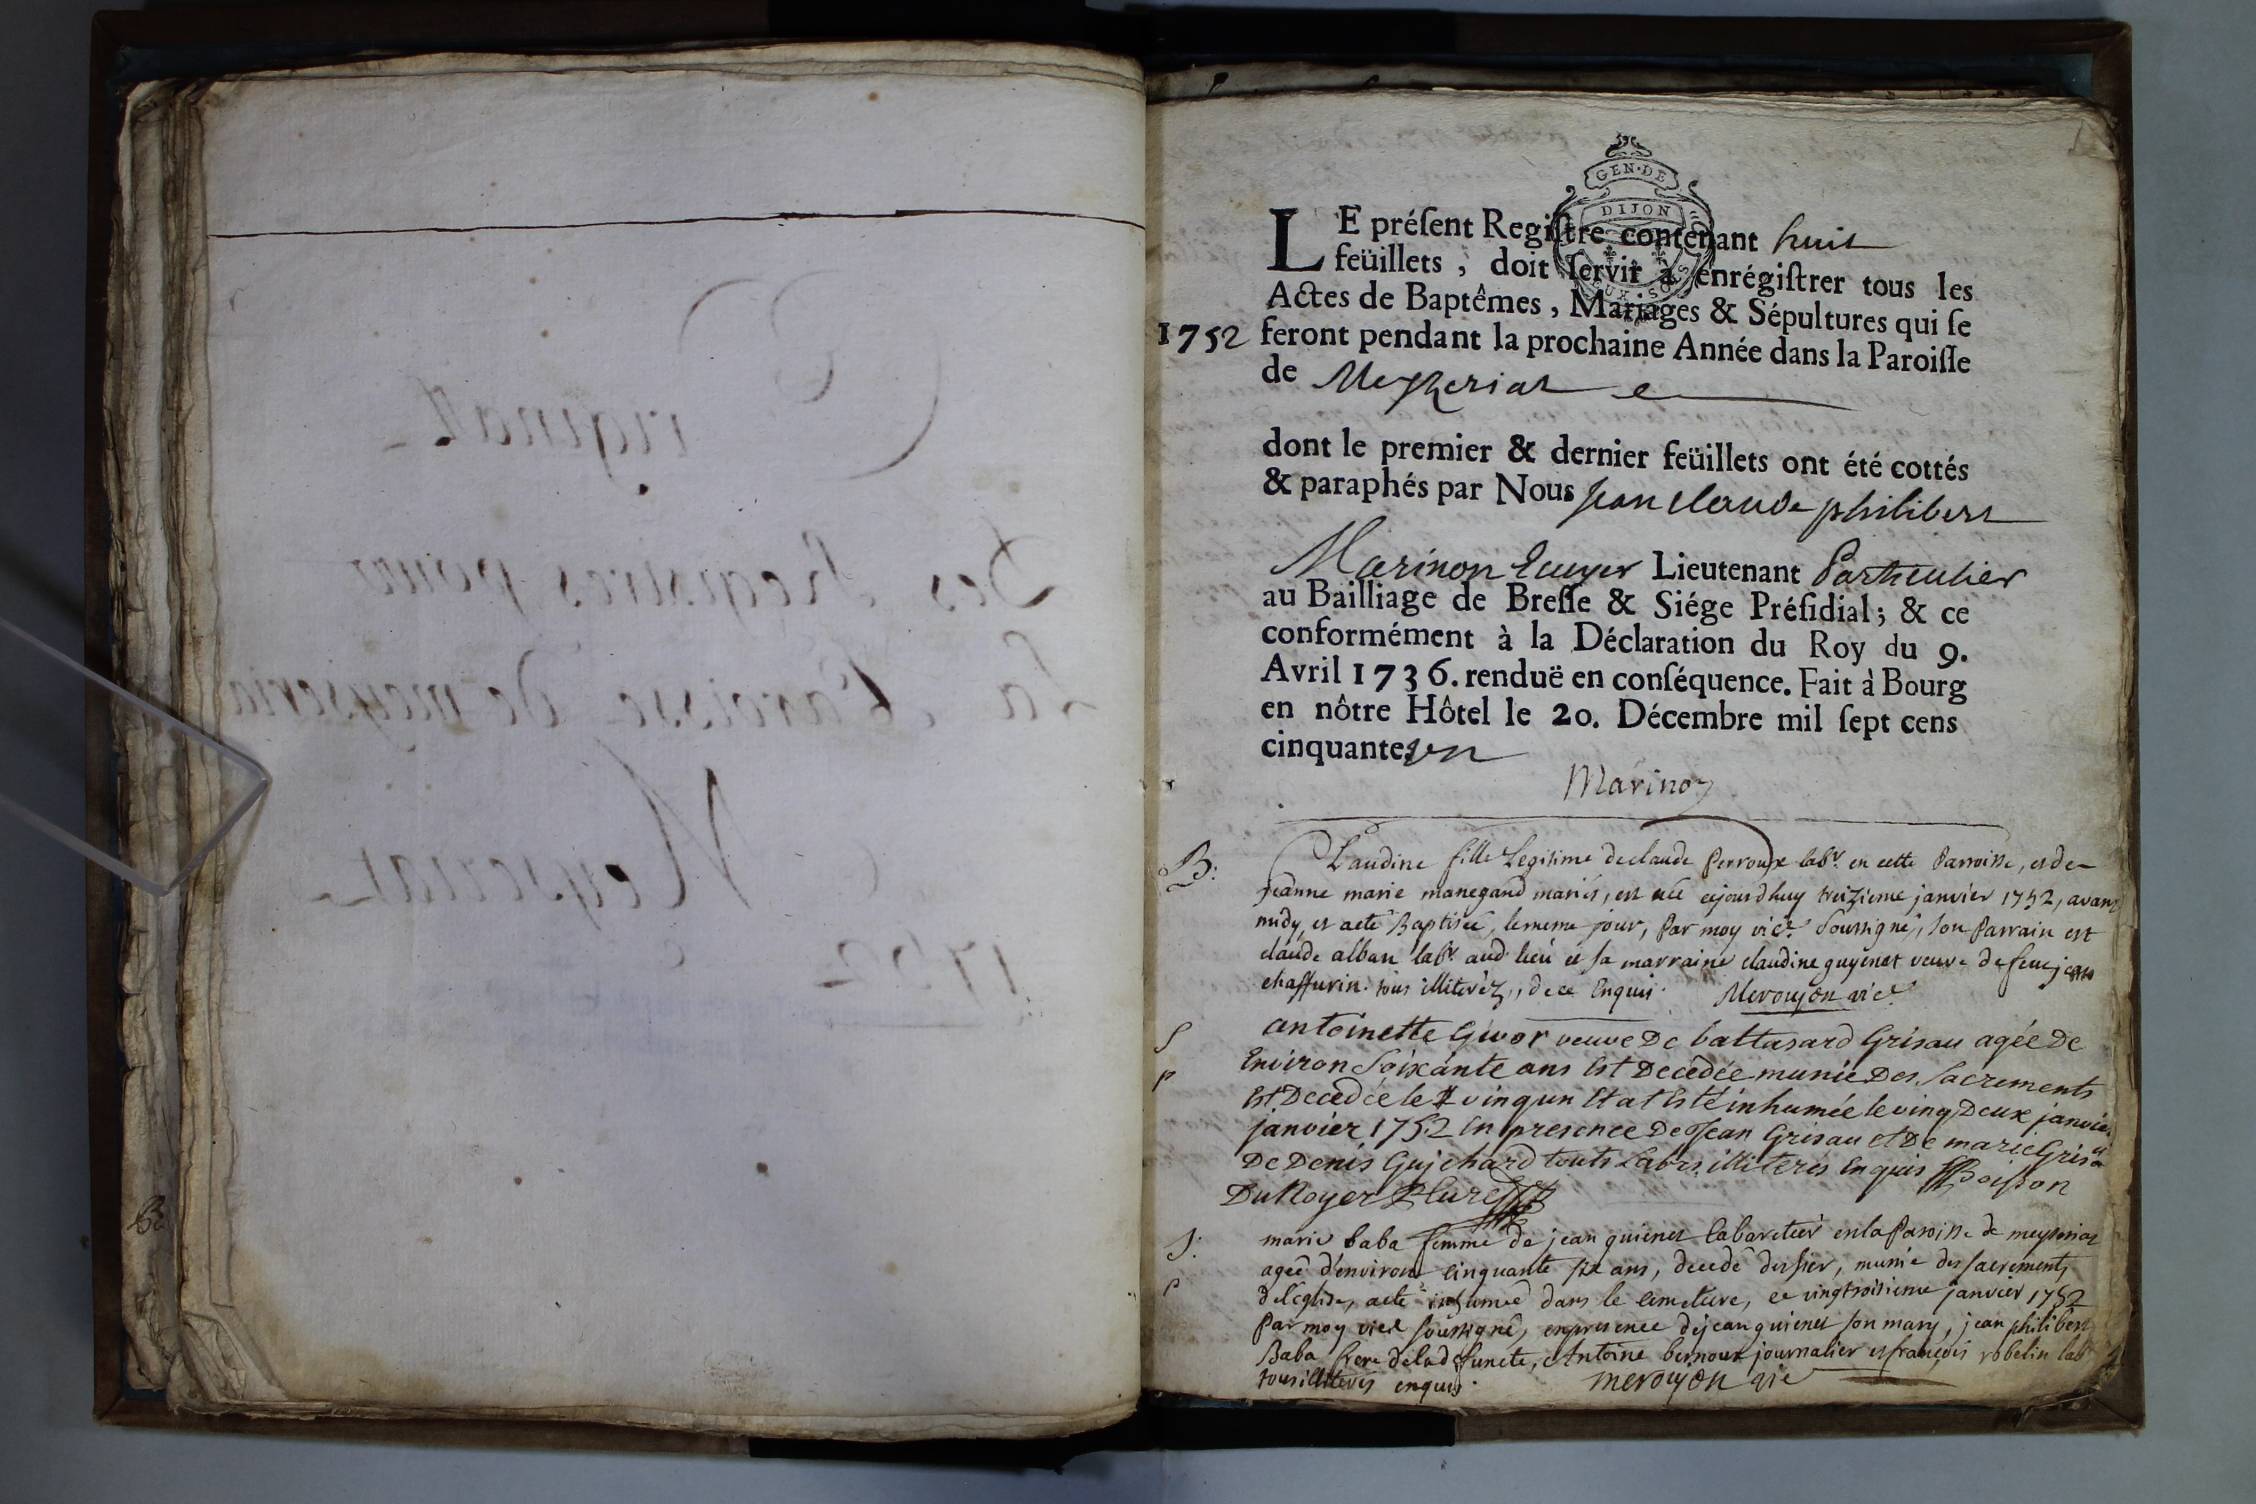 Original
Des Registres pour
La Paroisse de meyseria
Meyseriat
1752
B
GEN·DE
DIJON
LE préſent Regiſtre contenant huit
feüillets, doit ſervir à enrégiſtrer tous les
Actes de Baptêmes, Mariages & Sépultures qui ſe
1752 feront pendant la prochaine Année dans la Paroiſſe
de Meyzeriat
dont le premier & dernier feüillets ont été cottés
& paraphés par Nous Jean Claude philibert
Marinon Ecuyer Lieutenant Particulier
au Bailliage de Breſſe & Siége Préſidial; & ce
conformément à la Déclaration du Roy du 9.
Avril 1736. renduë en conſéquence. Fait à Bourg
en nôtre Hôtel le 20. Décembre mil ſept cens
cinquante un
Marinon
B: Claudine fille Legitime de claude Perroux labr. en cette Parroisse, et de
jeanne marie manegand mariés, est née cejourdhuy treizieme janvier 1752, avant
midy, et aeté Baptisée, le meme jour, Par moy vice. Soussigné, son Parrain est
claude alban labr. aud. lieu et sa marraine claudine guyenet veuve de feu jean
chaffurin. tous illiterés, de ce Enquis. Meroujon vice.
S antoinette Givor veuve De baltasard Grisau agée De
Environ Soixante ans Est Decedée munie Des Sacrements
P Est Decedée le vingun Et at Esté inhumée le ving Deux janvier
janvier 1752 En presence De Jean Grisau et De marie Grisau
De Denis Gujchard touts Labrs. illiterés Enquis Boisson
Du Noyer Cure
S: marie baba femme de jean guienet Cabaretier en la Paroisse de meyseriat
agée d'environ cinquante six ans, decedé d'hier, munie des sacrements
P de l'Eglise, aeté inhumée dans le cimetiere, ce vingtroisieme janvier 1752
Par moy vice soussigné, en presence de jean guienet son mary, jean philibert
Baba frere de la defuncte, Antoine bernoux journalier et françois robelin labr
tous illiterés enquis. meroujon vic